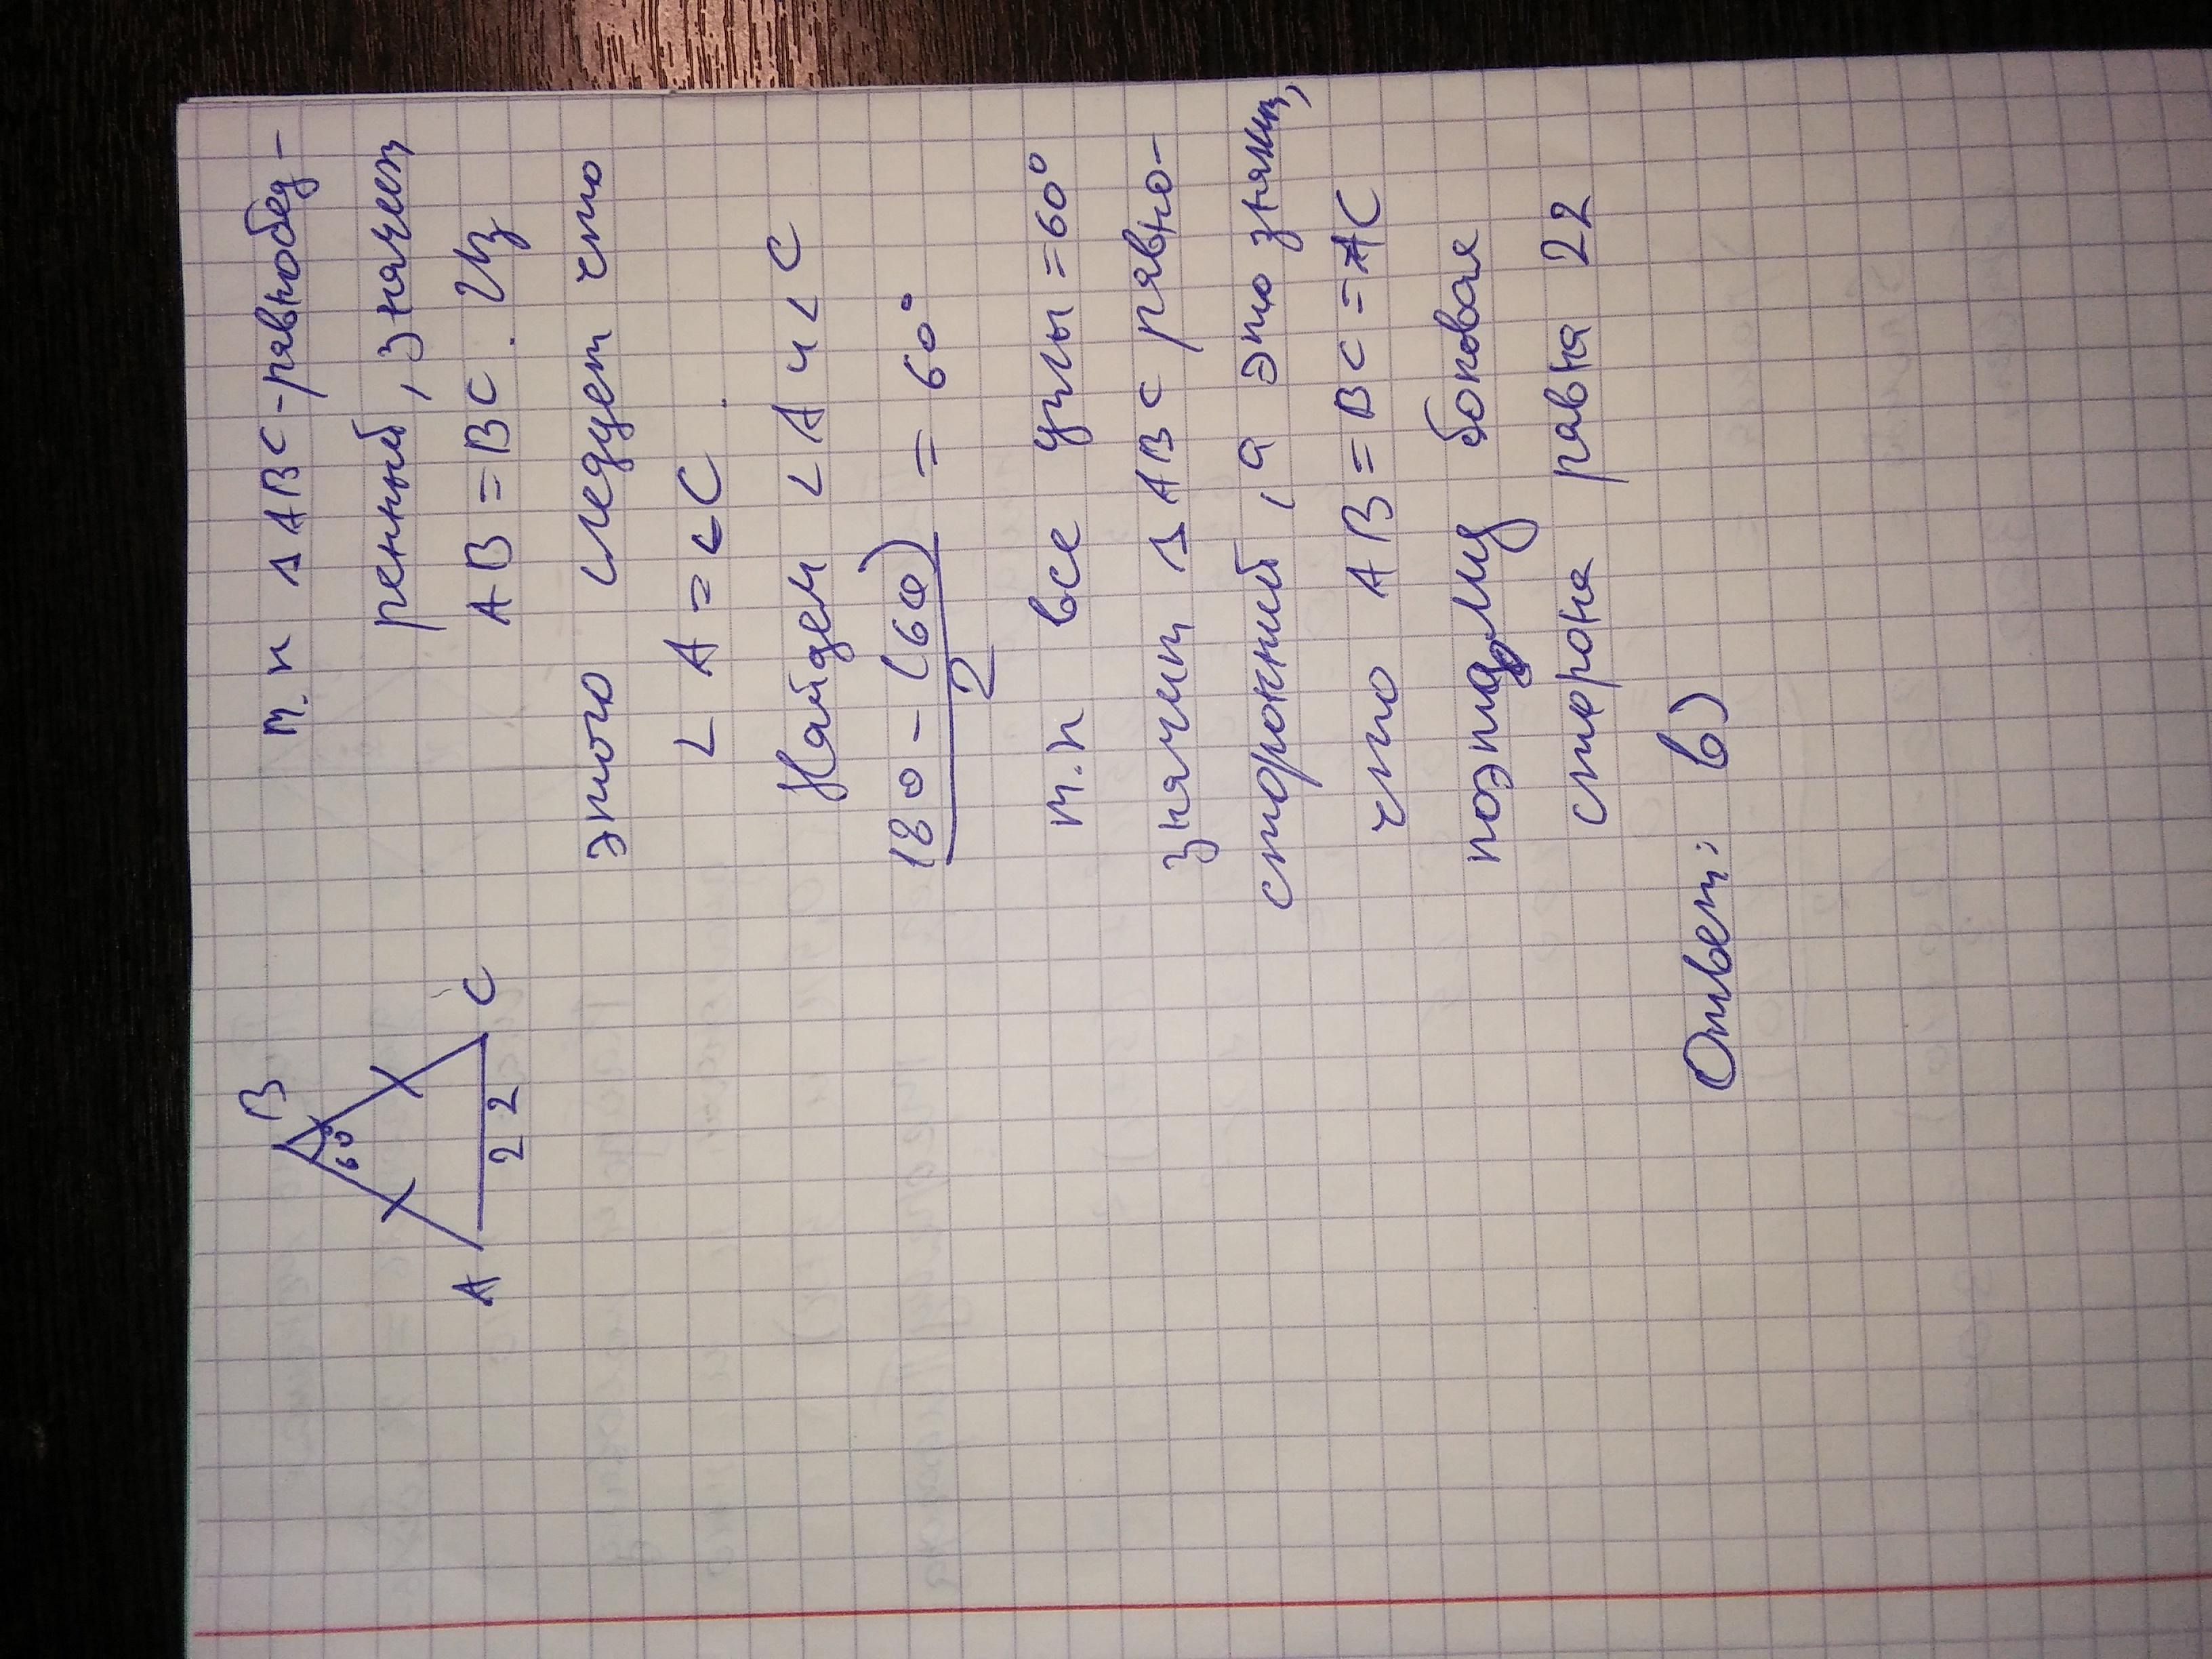 B
60
A
22
C
т.к ΔABC - равнобед-
ренный, значет
AB = BC. Из
этого следует что
∠A = ∠C
Найдем ∠A и ∠C
180 - (60)
2
= 60°
т.к все углы = 60°
значит ΔABC равно-
сторонний, а это значит,
что AB = BC = AC
поэтому боковая
сторона равна 22
Ответ: в)